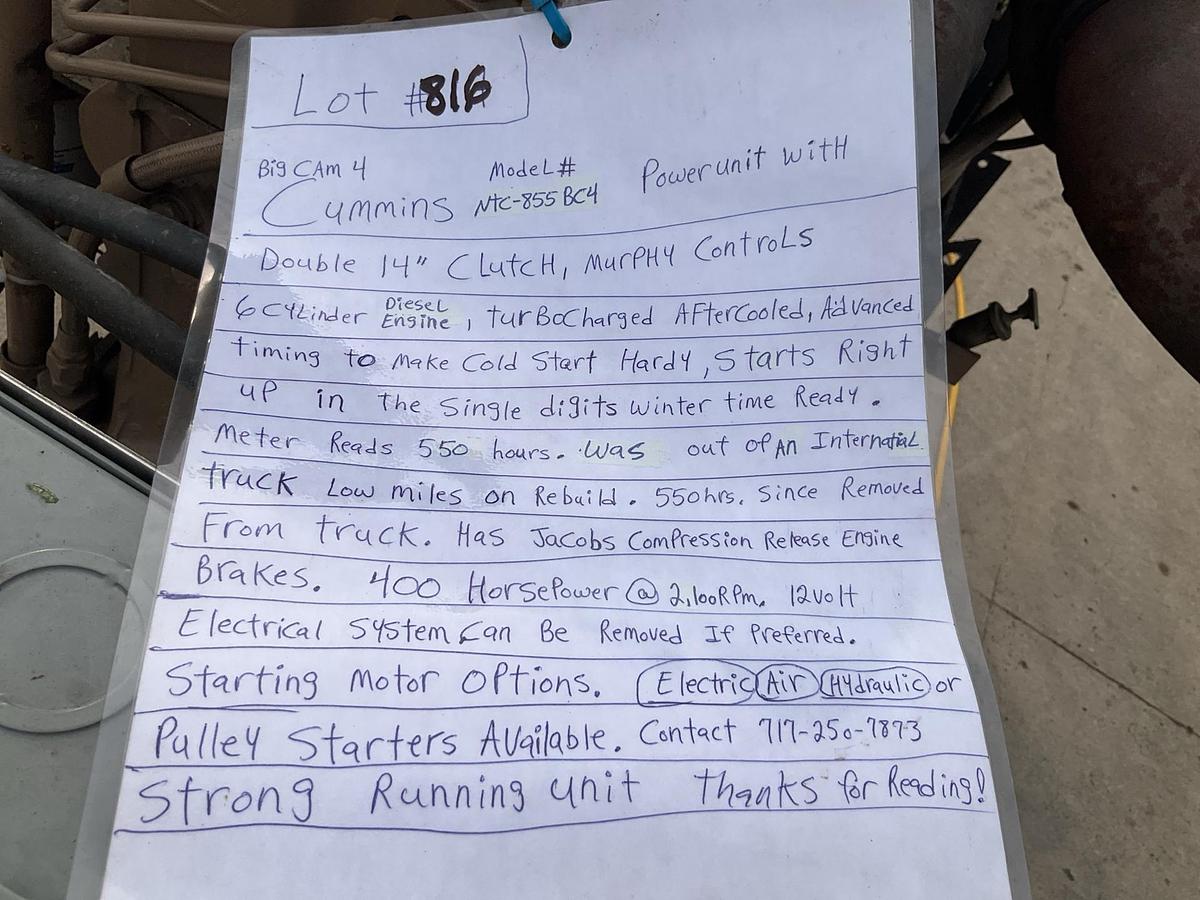 Lot #816
Big CAm 4 Model #
Cummins NTC-855 BC4 Powerunit with
Double 14" Clutch, Murphy Controls
6 Cylinder Diesel Engine, turboCharged AfterCooled, Advanced
timing to make Cold Start Hardy, Starts Right
up in the Single digits winter time Ready.
Meter Reads 550 hours. Was out of An Internatial
truck Low miles on Rebuild. 550hrs. Since Removed
From truck. Has Jacobs Compression Release Engine
Brakes. 400 Horsepower @ 2,100RPm. 12volt
Electrical System Can Be Removed If Preferred.
Starting Motor Options. Electric Air Hydraulic or
Pulley Starters Available. Contact 717-250-7873
Strong Running unit Thanks for Reading!